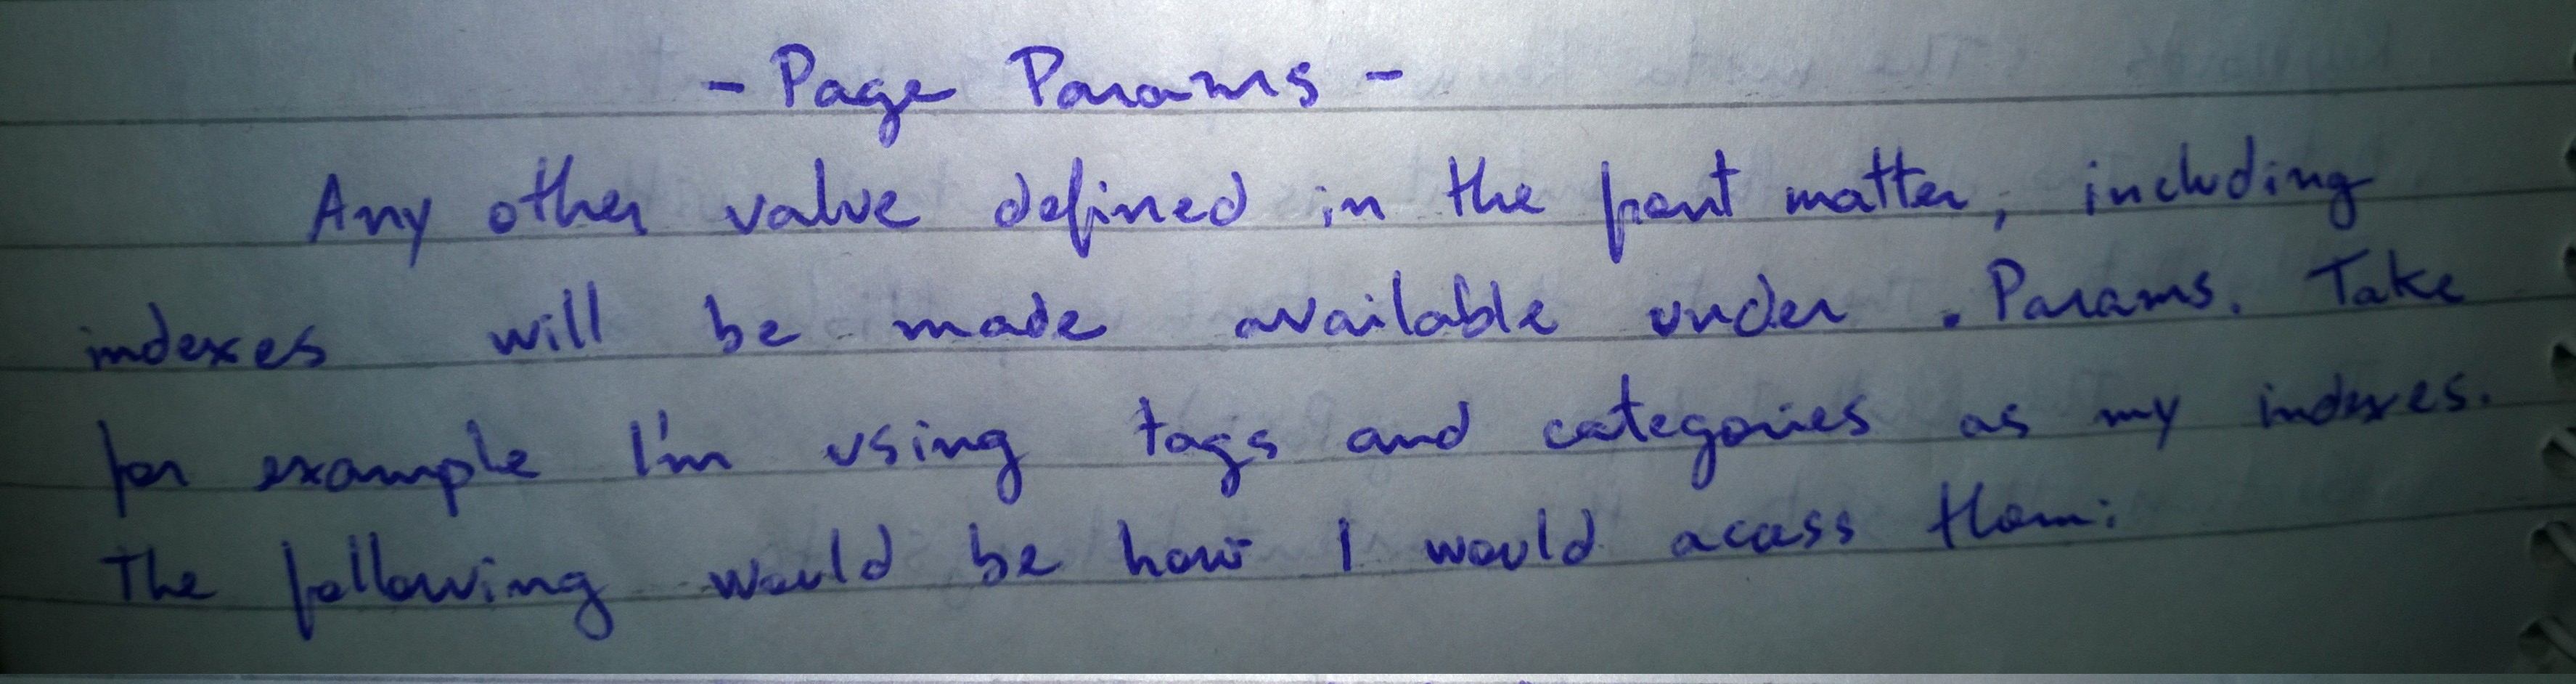 - Page Params -
Any other value defined in the font matter, including
indexes will be made available under .Params. Take
for example I'm using tags and categories as my indexes.
The following would be how I would acess them: